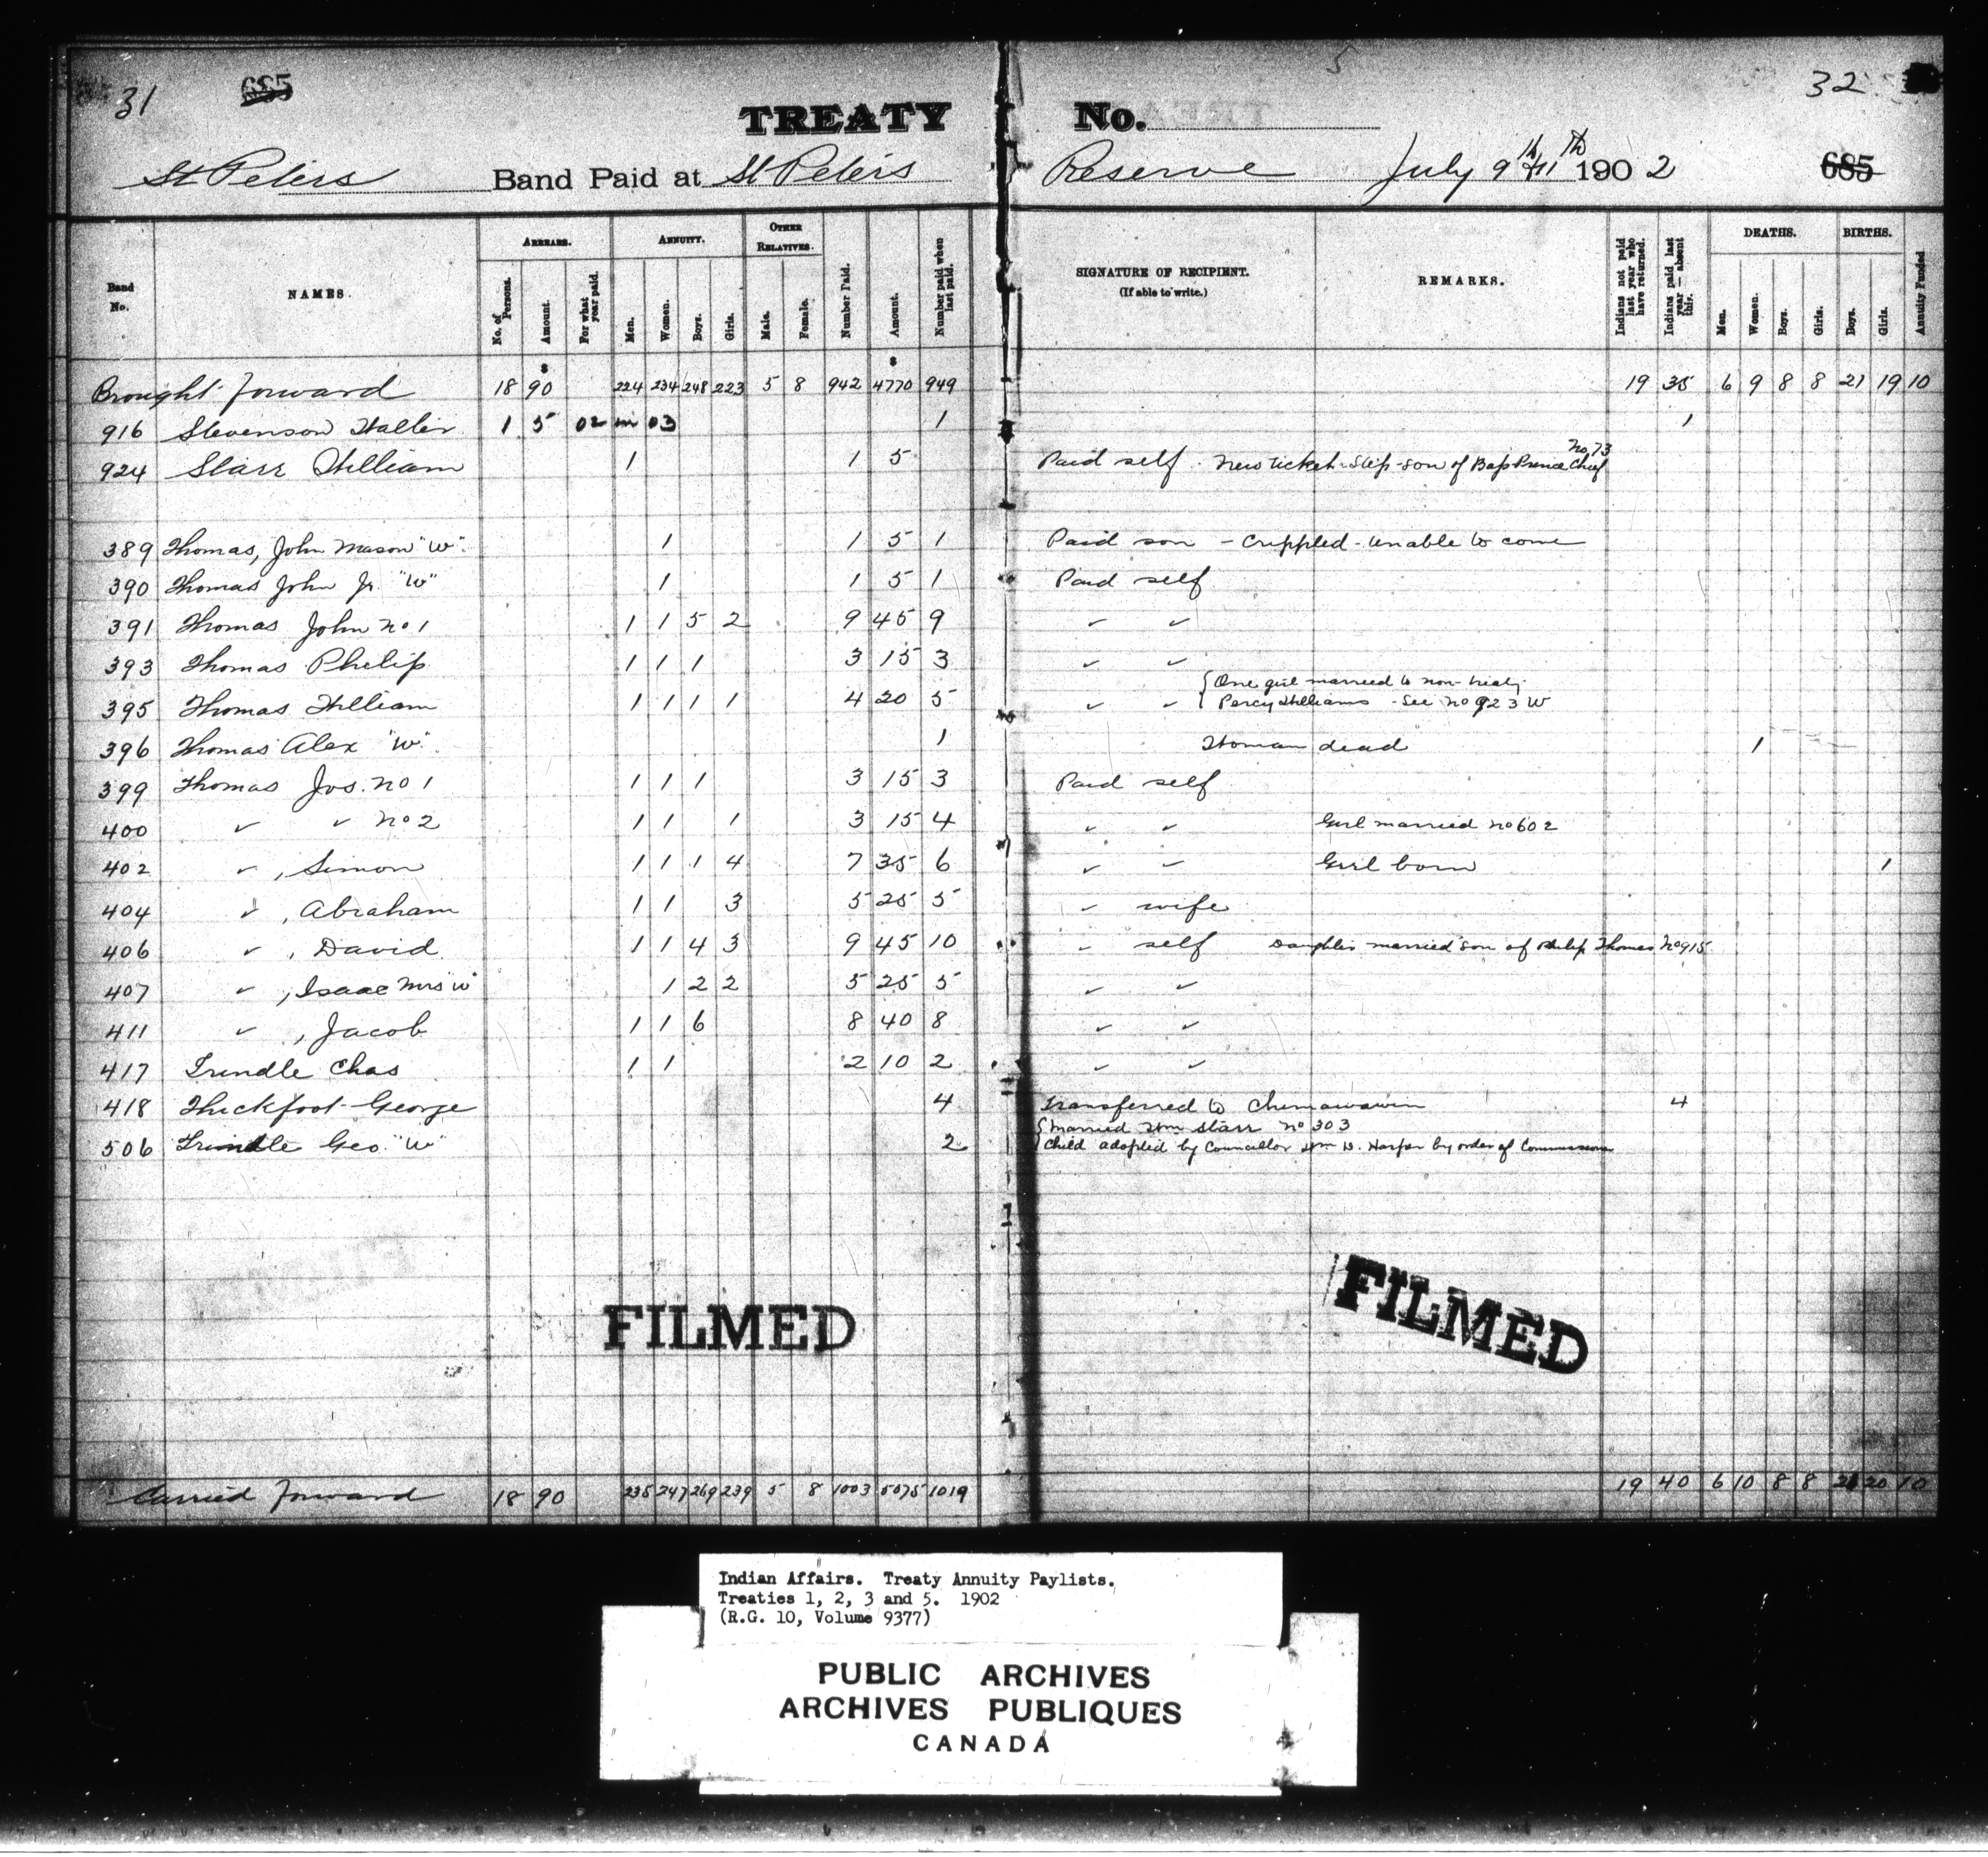 31 685 TREATY No. 5 32
St Peters Band Paid at St Peters Reserve July 9th & 11th 1902 685
Band No. NAMES. ARREARS. ANNUITY. OTHER RELATIVES. Number Paid. Amount. Number paid when last paid. SIGNATURE OF RECIPIENT. (If able to write.) REMARKS. Indians not paid last year who have returned. Indians paid last year — absent this. DEATHS. BIRTHS. Annuity Funded
No. of Persons. Amount. For what year paid. Men. Women. Boys. Girls. Male. Female. Men. Women. Boys. Girls. Boys. Girls.
$ $
Brought forward 18 90 224 234 248 223 5 8 942 4770 949 19 35 6 9 8 8 21 19 10
916 Stevenson Walter 1 5 02 in 03 1 1
924 Starr William 1 1 5 Paid self. New ticket. Step-son of Bap Prince Chief No 73
389 Thomas, John Mason "W". 1 1 5 1 Paid son - Crippled - Unable to come
390 Thomas John Jr. "W" 1 1 5 1 Paid self
391 Thomas John No 1 1 1 5 2 9 45 9 " "
393 Thomas Philip 1 1 1 3 15 3 " "
395 Thomas William 1 1 1 1 4 20 5 " " { One girl married to non-treaty
{ Percy Williams - See No 923 W
396 Thomas Alex "W". 1 Woman dead 1
399 Thomas Jos. No 1 1 1 1 3 15 3 Paid self
400 " " No 2 1 1 1 3 15 4 " " Girl married No 602
402 " , Simon 1 1 1 4 7 35 6 " " Girl born 1
404 " , Abraham 1 1 3 5 25 5 " wife
406 " , David 1 1 4 3 9 45 10 " self Daughter married son of Philip Thomas No 915
407 " , Isaac Mrs "W" 1 2 2 5 25 5 " "
411 " , Jacob 1 1 6 8 40 8 " "
417 Trindle Chas 1 1 2 10 2 " "
418 Thickfoot George 4 Transferred to Chemawawin 4
506 Trindle Geo. "W" 2 { Married Wm Starr No 303
{ Child adopted by Councillor Wm D. Harper by order of Commissioner
FILMED FILMED
Carried forward 18 90 235 247 269 239 5 8 1003 5075 1019 19 40 6 10 8 8 21 20 10
Indian Affairs. Treaty Annuity Paylists.
Treaties 1, 2, 3 and 5. 1902
(R.G. 10, Volume 9377)
PUBLIC ARCHIVES
ARCHIVES PUBLIQUES
CANADA